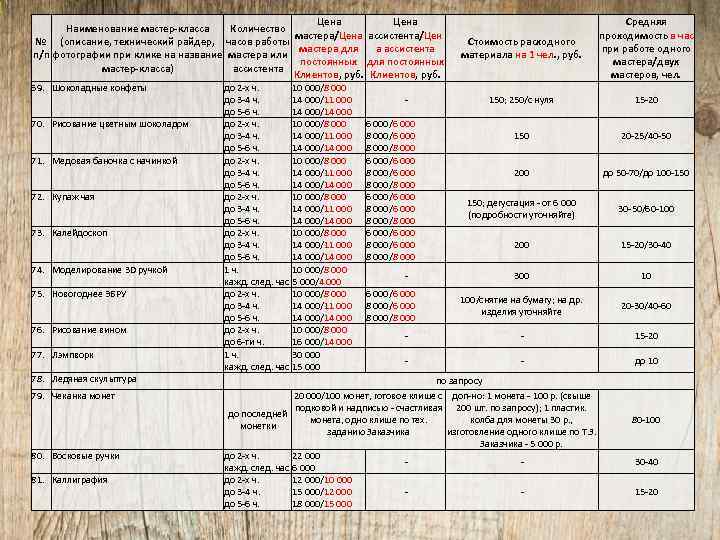 № п/п
Наименование мастер-класса (описание, технический райдер, фотографии при клике на название мастер-класса)
Количество часов работы мастера или ассистента
Цена мастера/Цена мастера для постоянных Клиентов, руб.
Цена ассистента/Цен а ассистента для постоянных Клиентов, руб.
Стоимость расходного материала на 1 чел., руб.
Средняя проходимость в час при работе одного мастера/двух мастеров, чел.
69. Шоколадные конфеты
до 2-х ч. 10 000/8 000
до 3-4 ч. 14 000/11 000 - 150; 250/с нуля 15-20
до 5-6 ч. 14 000/14 000
70. Рисование цветным шоколадом
до 2-х ч. 10 000/8 000 6 000/6 000
до 3-4 ч. 14 000/11 000 8 000/6 000 150 20-25/40-50
до 5-6 ч. 14 000/14 000 8 000/8 000
71. Медовая баночка с начинкой
до 2-х ч. 10 000/8 000 6 000/6 000
до 3-4 ч. 14 000/11 000 8 000/6 000 200 до 50-70/до 100-150
до 5-6 ч. 14 000/14 000 8 000/8 000
72. Купаж чая
до 2-х ч. 10 000/8 000 6 000/6 000
до 3-4 ч. 14 000/11 000 8 000/6 000 150; дегустация - от 6 000 (подробности уточняйте) 30-50/60-100
до 5-6 ч. 14 000/14 000 8 000/8 000
73. Калейдоскоп
до 2-х ч. 10 000/8 000 6 000/6 000
до 3-4 ч. 14 000/11 000 8 000/6 000 200 15-20/30-40
до 5-6 ч. 14 000/14 000 8 000/8 000
74. Моделирование 3D ручкой
1 ч. 10 000/8 000 - 300 10
кажд. след. час 5 000/4 000
75. Новогоднее ЭБРУ
до 2-х ч. 10 000/8 000 6 000/6 000
до 3-4 ч. 14 000/11 000 8 000/6 000 100/снятие на бумагу; на др. изделия уточняйте 20-30/40-60
до 5-6 ч. 14 000/14 000 8 000/8 000
76. Рисование вином
до 2-х ч. 10 000/8 000 - - 15-20
до 6-ти ч. 16 000/14 000
77. Лэмпворк
1 ч. 30 000 - - до 10
кажд. след. час 15 000
78. Ледяная скульптура
по запросу
79. Чеканка монет
до последней монетки
20 000/100 монет, готовое клише с подковой и надписью - счастливая монета, одно клише по тех. заданию Заказчика
доп-но: 1 монета - 100 р. (свыше 200 шт. по запросу); 1 пластик. колба для монеты 30 р., изготовление одного клише по Т.З. Заказчика - 5 000 р.
80-100
80. Восковые ручки
до 2-х ч. 22 000 - - 30-40
кажд. след. час 6 000
81. Каллиграфия
до 2-х ч. 12 000/10 000
до 3-4 ч. 15 000/12 000 - - 15-20
до 5-6 ч. 18 000/15 000